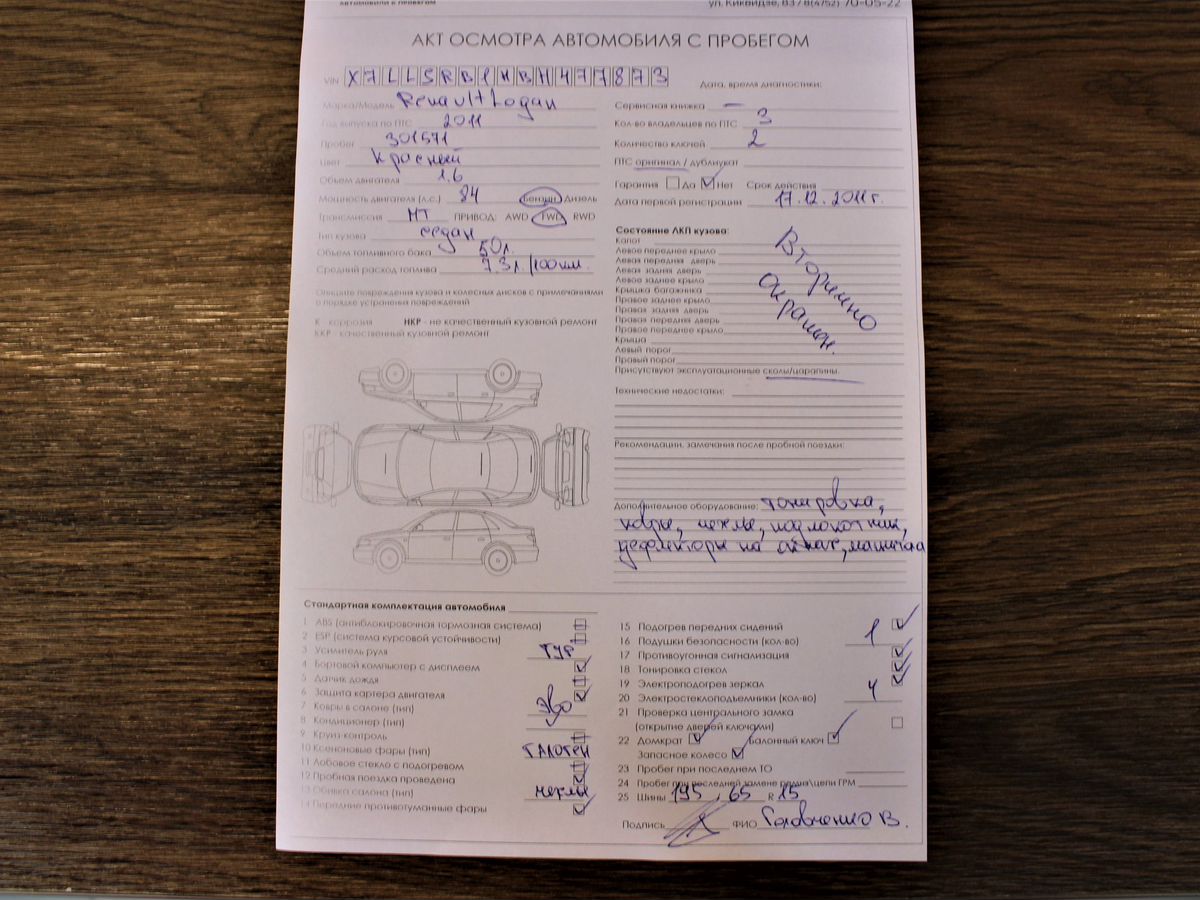 ул. Киквидзе, 83 / 8(4752) 70-05-22
АКТ ОСМОТРА АВТОМОБИЛЯ С ПРОБЕГОМ
VIN X7LLSRB1HBH477873
Дата, время диагностики:
Марка/Модель Renault Logan
Год выпуска по ПТС 2011
Пробег 301571
Цвет Красный
Объем двигателя 1.6
Мощность двигателя (л.с.) 84 Бензин Дизель
Трансмиссия МТ ПРИВОД: AWD FWD RWD
Тип кузова седан
Объем топливного бака 50л
Средний расход топлива 7.3л/100км.
Опишите повреждения кузова и колесных дисков с примечаниями
о порядке устранения повреждений
К - коррозия НКР - не качественный кузовной ремонт
ККР - качественный кузовной ремонт
Сервисная книжка —
Кол-во владельцев по ПТС 3
Количество ключей 2
ПТС оригинал / дубликат
Гарантия Да Нет Срок действия
Дата первой регистрации 17.12.2011г.
Состояние ЛКП кузова:
Капот
Левое переднее крыло
Левая передняя дверь
Левая задняя дверь
Левое заднее крыло
Крышка багажника
Правое заднее крыло
Правая задняя дверь
Правая передняя дверь
Правое переднее крыло
Крыша
Левый порог
Правый порог
Вторично
окрашен.
Присутствуют эксплуатационные сколы/царапины.
Технические недостатки:
Рекомендации, замечания после пробной поездки:
Дополнительное оборудование: тонировка,
ковры, чехлы, подлокотник,
дефлекторы на окнах,
Стандартная комплектация автомобиля
1 ABS (антиблокировочная тормозная система)
2 ESP (система курсовой устойчивости)
3 Усилитель руля ГУР
4 Бортовой компьютер с дисплеем
5 Датчик дождя
6 Защита картера двигателя
7 Ковры в салоне (тип) Эво
8 Кондиционер (тип)
9 Круиз-контроль
10 Ксеноновые фары (тип) галоген
11 Лобовое стекло с подогревом
12 Пробная поездка проведена
13 Обивка салона (тип) чехлы
14 Передние противотуманные фары
15 Подогрев передних сидений
16 Подушки безопасности (кол-во) 1
17 Противоугонная сигнализация
18 Тонировка стекол
19 Электроподогрев зеркал
20 Электростеклоподъемники (кол-во) 4
21 Проверка центрального замка
(открытие дверей ключами)
22 Домкрат Балонный ключ
Запасное колесо
23 Пробег при последнем ТО
24 Пробег при последней замене ремня\цепи ГРМ
25 Шины 195 . 65 R 15
Подпись ФИО Головченко В.